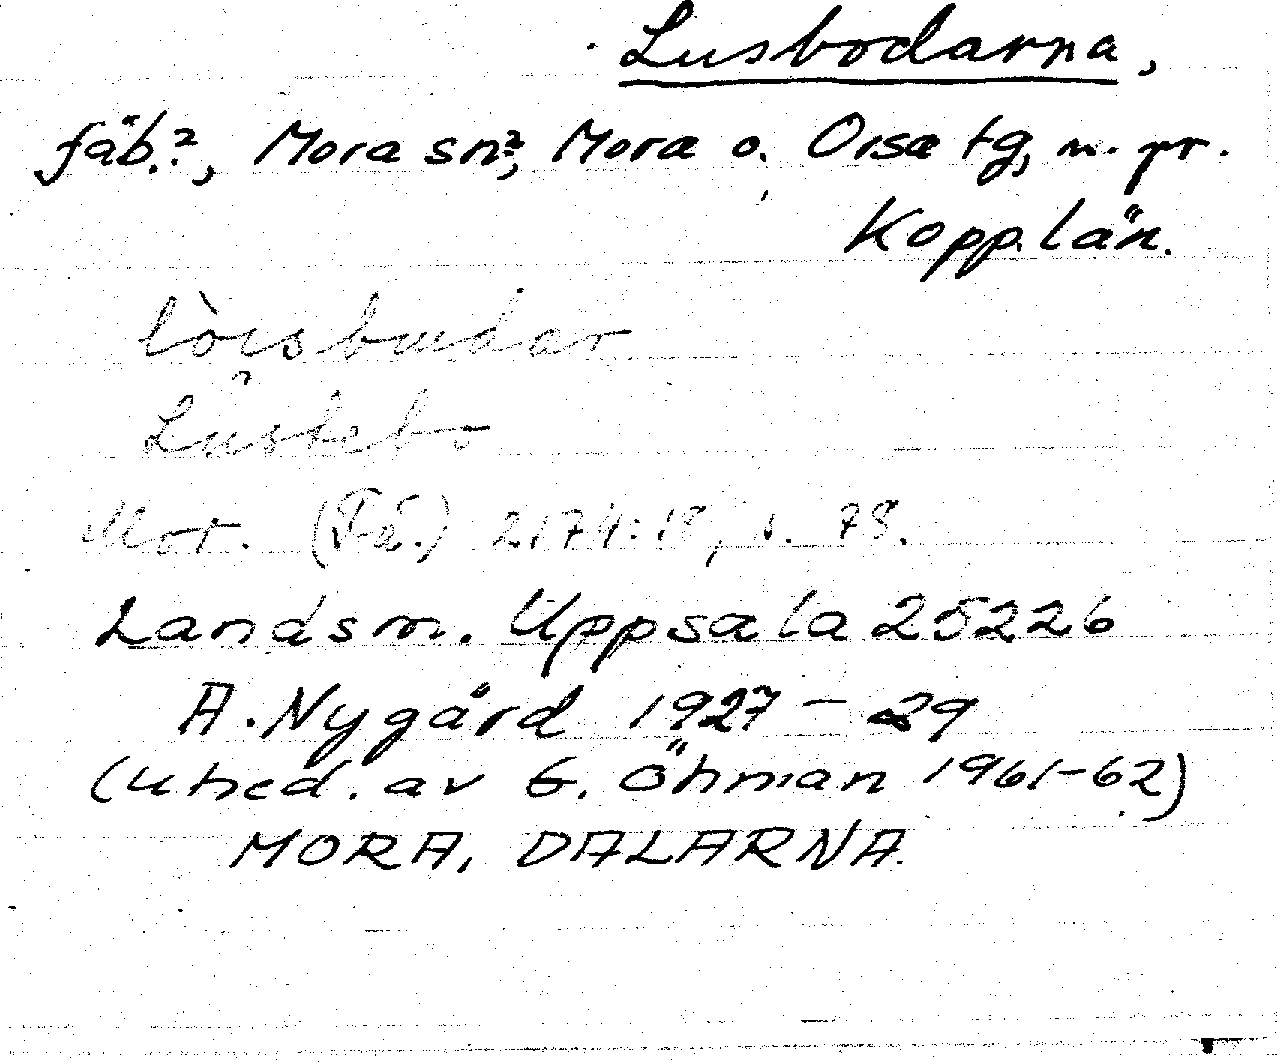 Lusbodarna,
fäb.?, Mora sn?, Mora o. Orsa tg, n. pr.
Kopp. län.
lòisbudar
Lustebo
Mot. (Få.) 2174:18, s. 78.
Landsm. Uppsala 25226
A. Nygård 1927-29
(uhed. av G. Öhman 1961-62)
MORA, DALARNA.